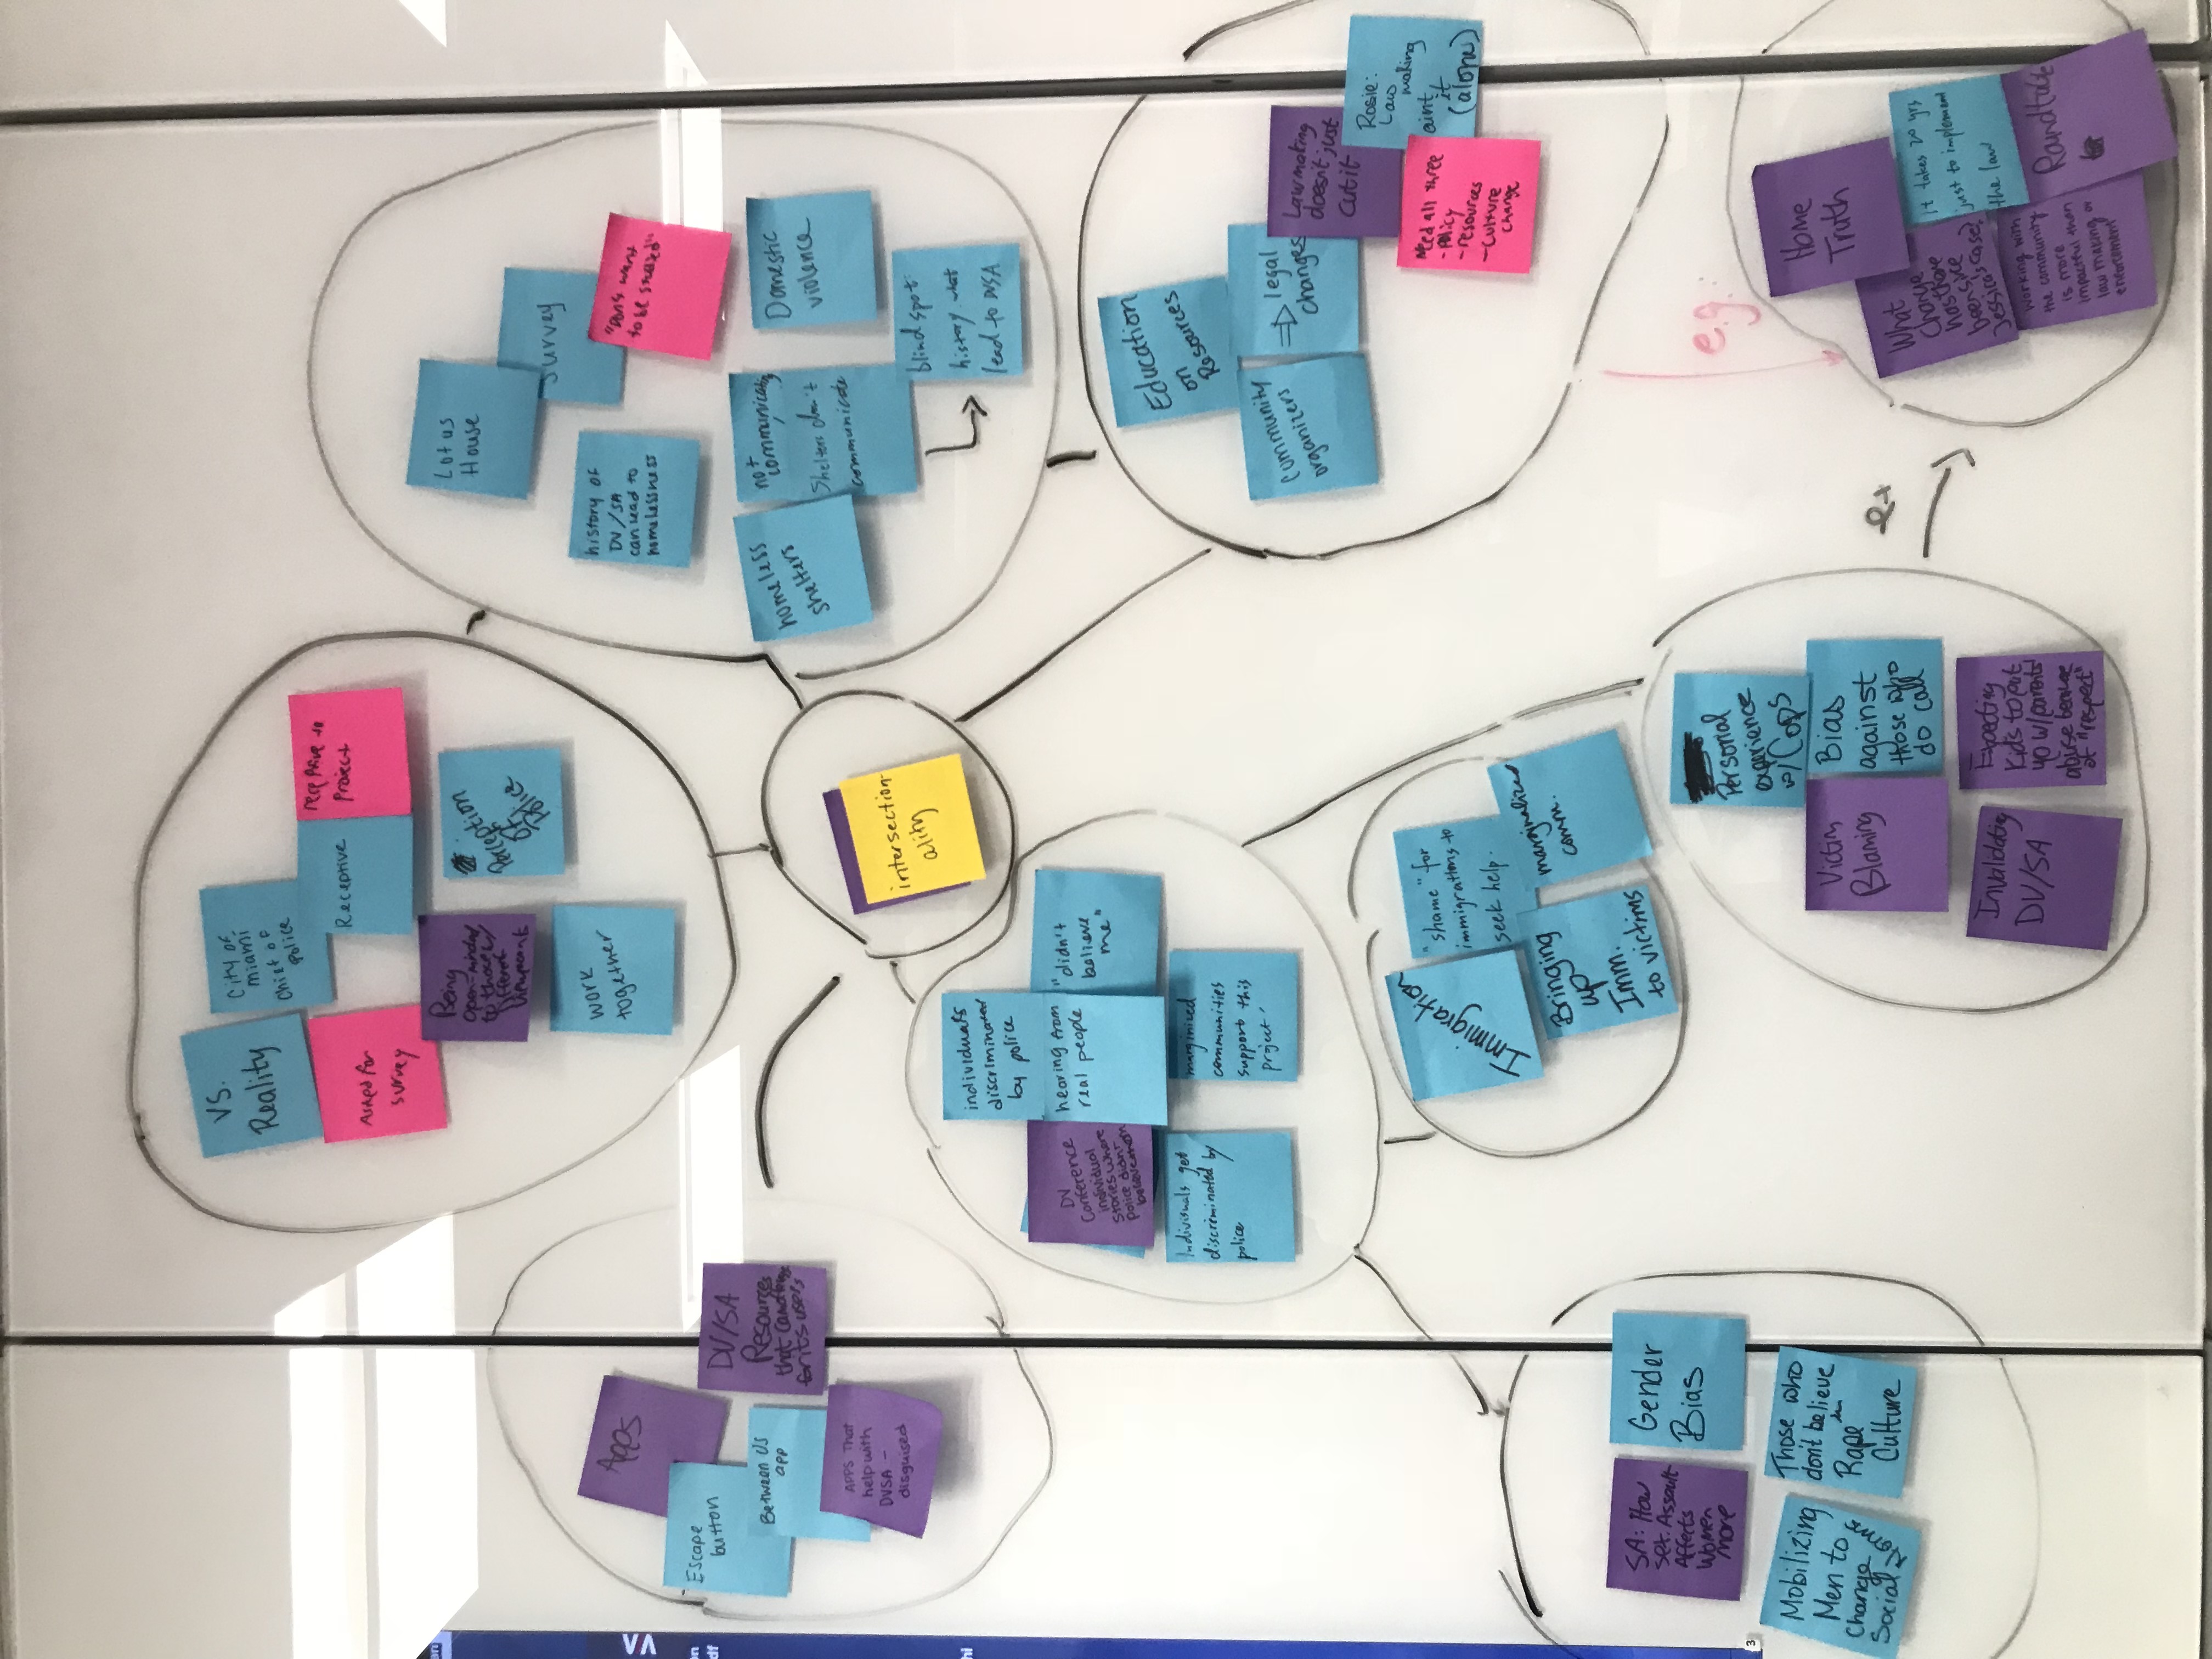 VS.
Reality
City of
miami
Chief of
Police
Asked for
survey
Receptive
receptive to
Project
Being
open-minded
to those w/
Different
Viewpoints
Perception
of
Police
work
together
Lotus
House
Survey
history of
DV/SA
can lead to
homelessness
"Don't want
to be studied"
homeless
shelters
not
communicating
Shelters don't
communicate
Domestic
violence
blind spot:
history what
lead to DVSA
Apps
Escape
button
Between Us
app
DV/SA
Resources
that can
for its users
APPS That
help with
DVSA -
disguised
intersection-
ality
individuals
discriminated
by police
DV
Conference
individual
Stories where
police didn't
believe them
hearing from
real people
"didn't
believe
me"
Indivisuals get
discriminated by
police
marginized
communities
support this
project
Education
on
Resources
Community
organizers
⇒ legal
changes
Lawmaking
doesn't just
cut it
Rosie:
Law
making
aint
it
(alone)
Need all three
- Policy
- resources
- Culture
change
Immigration
"shame" for
immigrations to
seek help.
Bringing
up
Imm.
to victims
marginalized
comm.
SA: How
sex. Assault
Affects
Women
more
Gender
Bias
Mobilizing
Men to
Change
Social
Norms
Those who
don't believe
in
Rape
Culture
Personal
experience
w/ Cops
Victim
Blaming
Bias
against
those who
do call
Invalidating
DV/SA
Expecting
Kids to put
up w/ parents'
abuse because
of "respect"
ex
e.g.
Home
Truth
What
change
has there
been since
Jessica's case?
it takes 20 yrs
just to implement
the law
working with
the community
is more
impactful than
law making or
enforcement
Roundtable
3